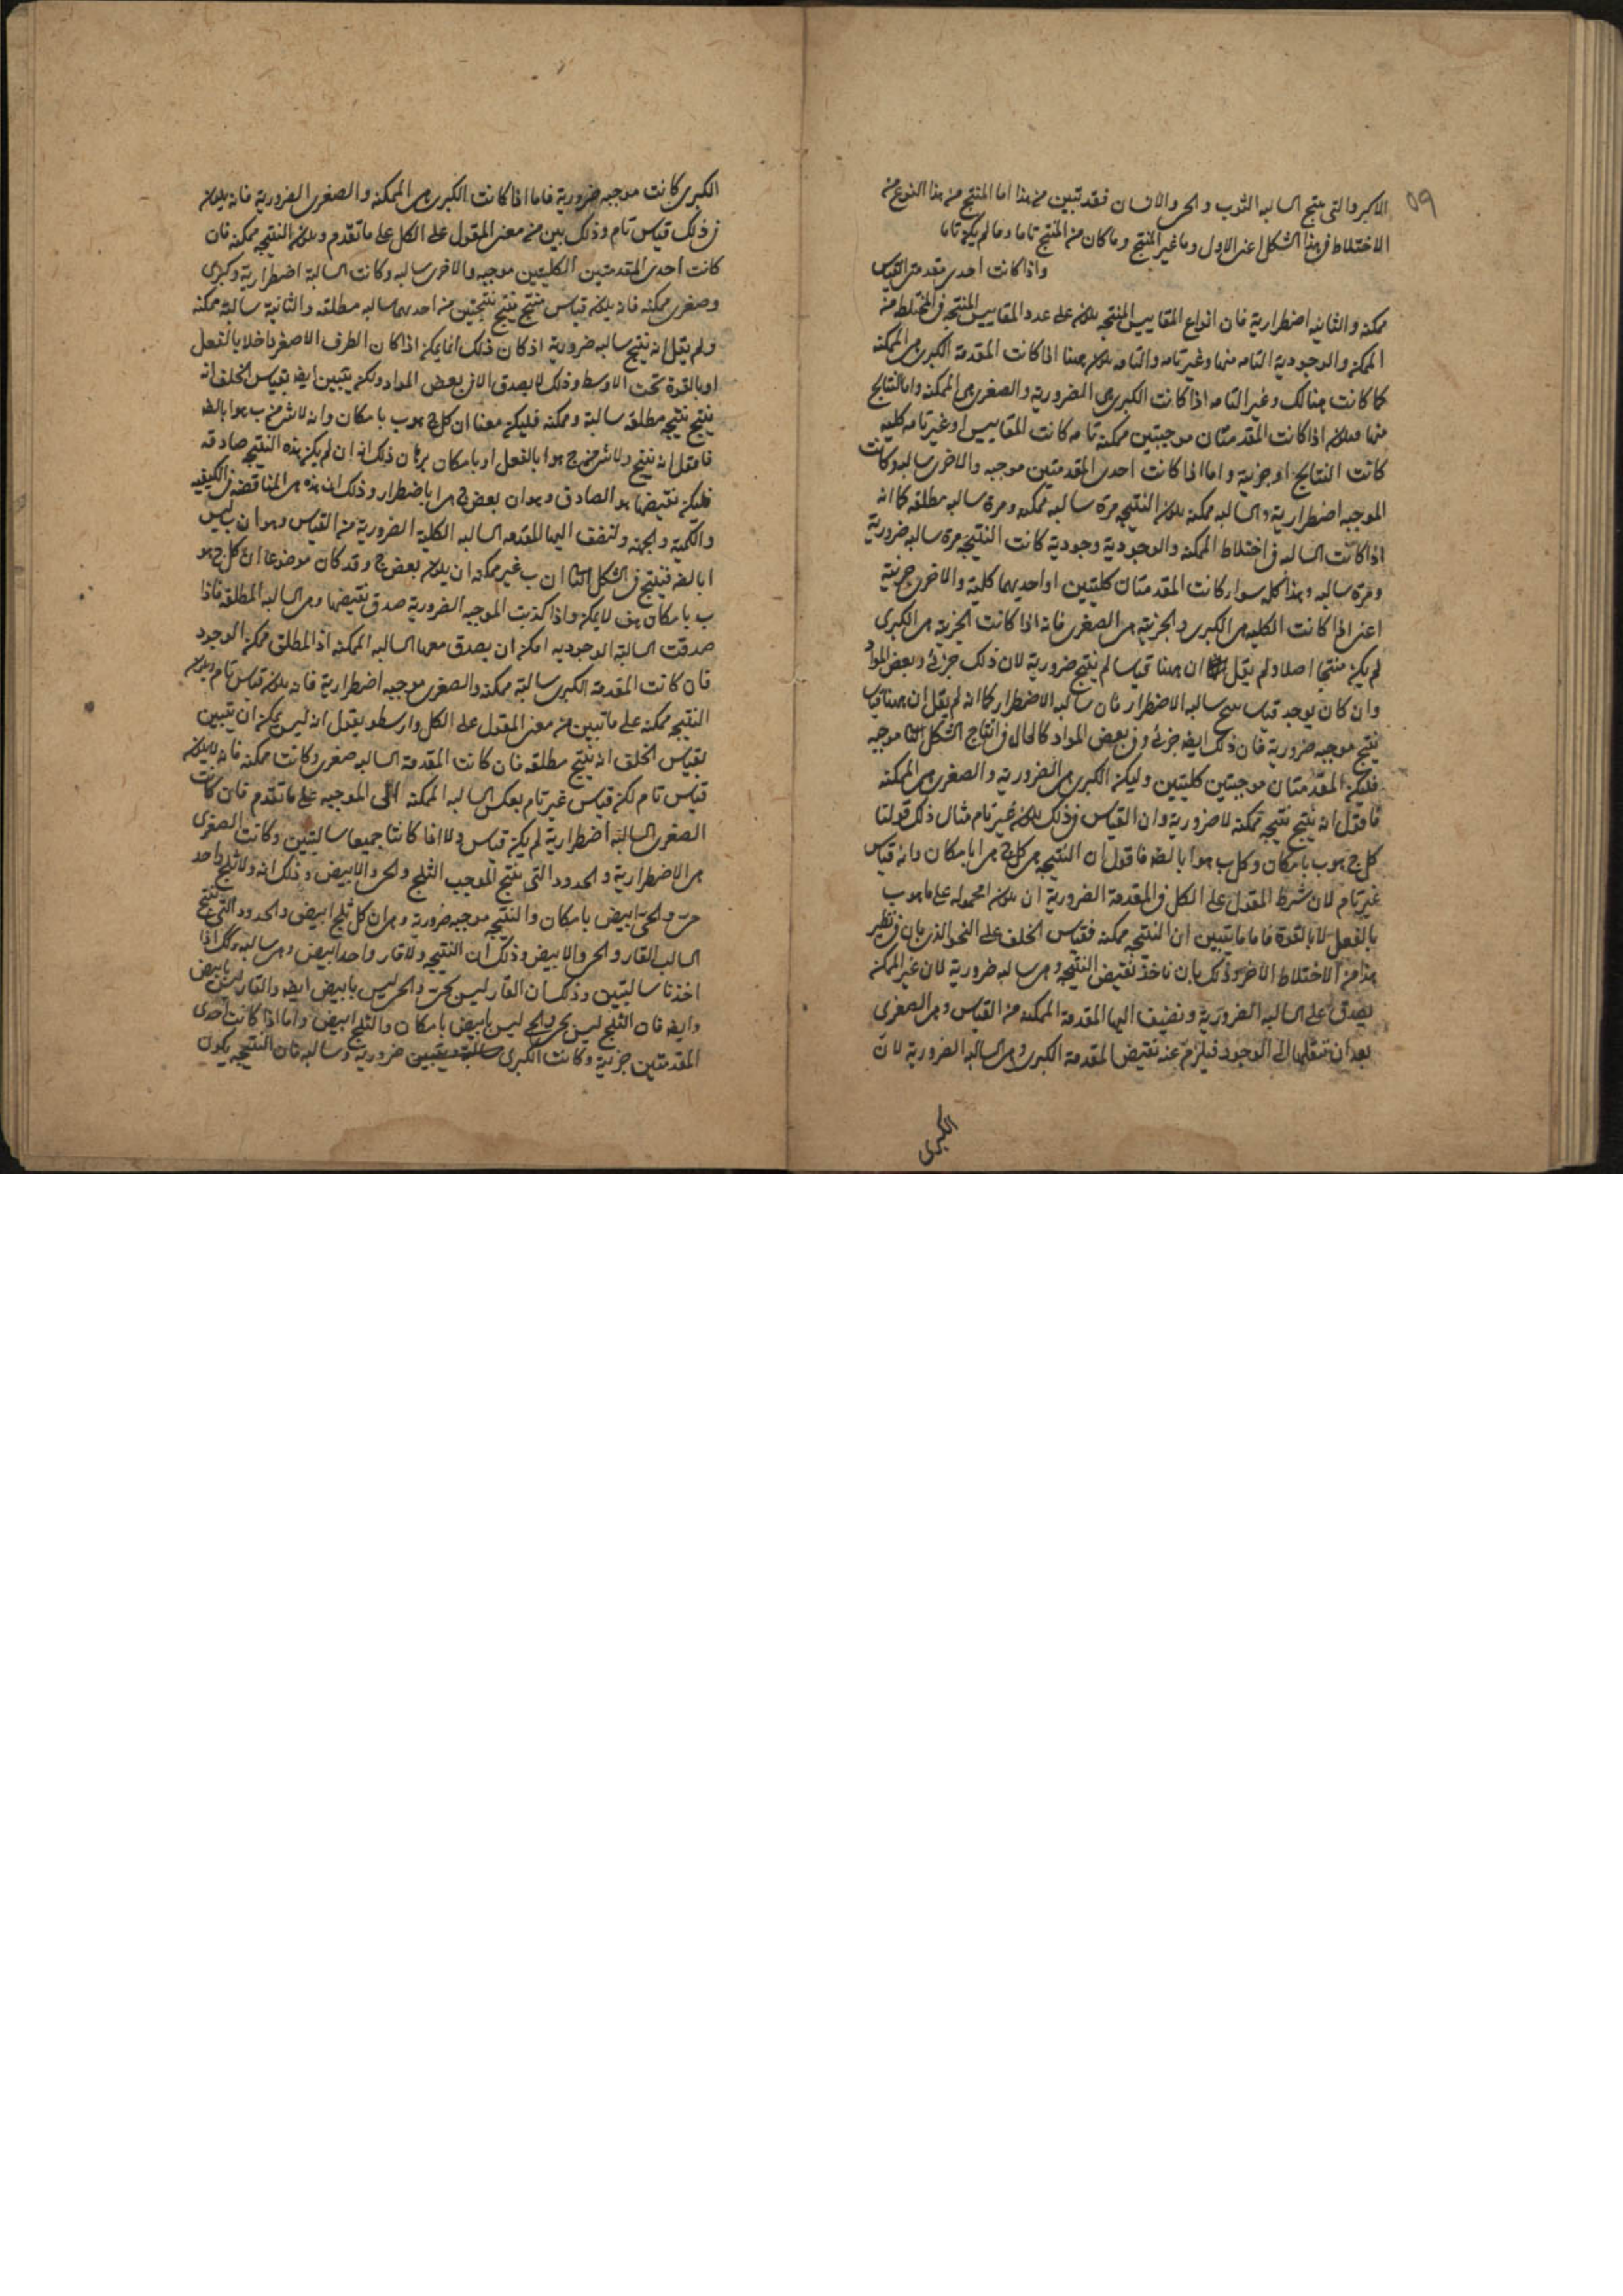 ٥٩
الاكبر والتى ينتج السالبه الثوب والحى والانسان فقد تبين من هذا اما المنتج من هذا النوع من
الاختلاط فى هذا الشكل اعنى الاول وما غير المنتج وما كان من المنتج تاما وما لم يكن تاما
واذا كانت احدى مقدمتى القياس
ممكنه والثانيه اضطرارية فان انواع المقاييس المنتجه يكون على عدد المقاييس المنتجه فى المختلط من
الممكنه والوجودية التامه منها وغير تامه والتامه يكون ههنا اذا كانت المقدمة الكبرى هى الممكنه
كما كانت هنالك وغير التامه اذا كانت الكبرى هى الضرورية والصغرى هى الممكنه واما النتايج
منها فيكون اذا كانت المقدمتان موجبتين ممكنه تامه كانت المقاييس او غير تامه كليه
كانت النتايج او جزئية واما اذا كانت احدى المقدمتين موجبه والاخرى سالبه وكانت
الموجبه اضطرارية والسالبه ممكنه يكون النتيجه مرة سالبه ممكنه ومرة سالبه مطلقه كما انه
اذا كانت السالبه فى اختلاط الممكنه والوجودية وجودية كانت النتيجه مرة سالبه ضرورية
ومرة سالبه وهذا كله سواء كانت المقدمتان كليتين او احديهما كلية والاخرى جزئية
اعنى اذا كانت الكليه هى الكبرى والجزئية هى الصغرى فانه اذا كانت الجزئية هى الكبرى
لم يكن منتجا اصلا ولم يقل ان ههنا قياسا لم ينتج ضرورية لان ذلك جزئى وبعض المواد
وان كان يوجد قياس ينتج سالبه الاضطرار فان سالبه الاضطرار كما انه لم يقل ان ههنا قياس
ينتج موجبه ضرورية فان ذلك ايضه جزئى وفى بعض المواد كالحال فى انتاج الشكل الثا موجبه
فليكن المقدمتان موجبتين كليتين وليكن الكبرى هى الضرورية والصغرى هى الممكنه
فاقول انه ينتج نتيجه ممكنه لا ضرورية وان القياس فى ذلك يكون غير تام مثال ذلك قولنا
كل ج هو ب بامكان وكل ب هو ا بالضه فاقول ان النتيجه هى كل ج هى ا بامكان وانه قياس
غير تام لان شرط المقول على الكل فى المقدمة الضرورية ان يكون المحموله على ما هو ب
بالفعل لا بالقوة فاما ما يتبين ان النتيجه ممكنه فقياس الخلف على النحو الذى بان فى نظير
هذا من الاختلاط الاخر وذلك بان ناخذ نقيض النتيجه وهى سالبه ضرورية لان غير الممكنه
يصدق على السالبه الضرورية ونضيف اليها المقدمة الممكنه من القياس وهى الصغرى
بعد ان ننقلها الى الوجود فيلزم عنه نقيض المقدمة الكبرى وهى السالبه الضرورية لان
الكبرى
الكبرى كانت موجبه ضرورية فاما اذا كانت الكبرى هى الممكنه والصغرى الضرورية فانه يكون
فى ذلك قياس تام وذلك بين من معنى المقول على الكل على ما تقدم ويكون النتيجه ممكنه فان
كانت احدى المقدمتين الكليتين موجبه والاخرى سالبه وكانت السالبة اضطرارية وكبرى
وصغرى ممكنه فانه يكون قياس منتج ينتج نتيجتين من احديهما سالبه مطلقه والثانية سالبة ممكنه
ولم يقل انه ينتج سالبه ضرورية اذ كان ذلك انما يمكن اذا كان الطرف الاصغر داخلا بالفعل
او بالقوة تحت الاوسط وذلك لا يصدق الا فى بعض المواد ولكن يتبين ايضه بقياس الخلف انه
ينتج نتيجه مطلقه سالبة وممكنه فليكن معنا ان كل ج هو ب بامكان وانه لا شى من ب هو ا بالضه
فاقول انه ينتج ولا شى من ج هو ا بالفعل او بامكان برهان ذلك انه ان لم يكن هذه النتيجه صادقه
فليكن نقيضها هو الصادق وهو ان بعض ج هى ا باضطرار وذلك ان هذه هى المناقضه فى الكيفيه
والكمية والجهة ولنضف اليها المقدمه السالبه الكلية الضرورية من القياس وهو ان ب ليس
ا بالضه فينتج فى الشكل الثا ان ب غير ممكنه ان يكون بعض ج وقد كان موضوعا ان كل ج هو
ب بامكان هف لا يمكن واذا كذبت الموجبه الضرورية صدق نقيضها وهى السالبه المطلقه فاذا
صدقت السالبة الوجوديه امكن ان يصدق معها السالبه الممكنه اذ المطلق ممكن الوجود
فان كانت المقدمة الكبرى سالبة ممكنه والصغرى موجبه اضطرارية فانه يكون قياس تام ويكون
النتيجه ممكنه على ما تبين من معنى المقول على الكل وارسطو يقول انه ليس يمكن ان يتبين
بقياس الخلف انه ينتج مطلقه فان كانت المقدمة السالبه صغرى وكانت ممكنه فانه لا يكون
قياس تام لكن قياس غير تام بعكس السالبه الممكنه الى الموجبه على ما تقدم فان كانت
الصغرى السالبه اضطرارية لم يكن قياس ولا اذا كانتا جميعا سالبتين وكانت الصغرى
هى الاضطرارية والحدود التى ينتج الموجب الثلج والحى والابيض وذلك انه ولا ثلج واحد
حى والحى ابيض بامكان والنتيجه موجبه ضرورية وهى ان كل ثلج ابيض والحدود التى ينتج
السالب القار والحى والابيض وذلك ان النتيجه ولا قار واحد ابيض وهى سالبه وكذلك اذا
اخذتا سالبتين وذلك ان القار ليس بحى والحى ليس بابيض ايضه والقار ليس بابيض
وايضه فان الثلج ليس بحى والحى ليس بابيض بامكان والثلج ابيض واما اذا كانت احدى
المقدمتين جزئية وكانت الكبرى ضرورية وسالبه فان النتيجه يكون